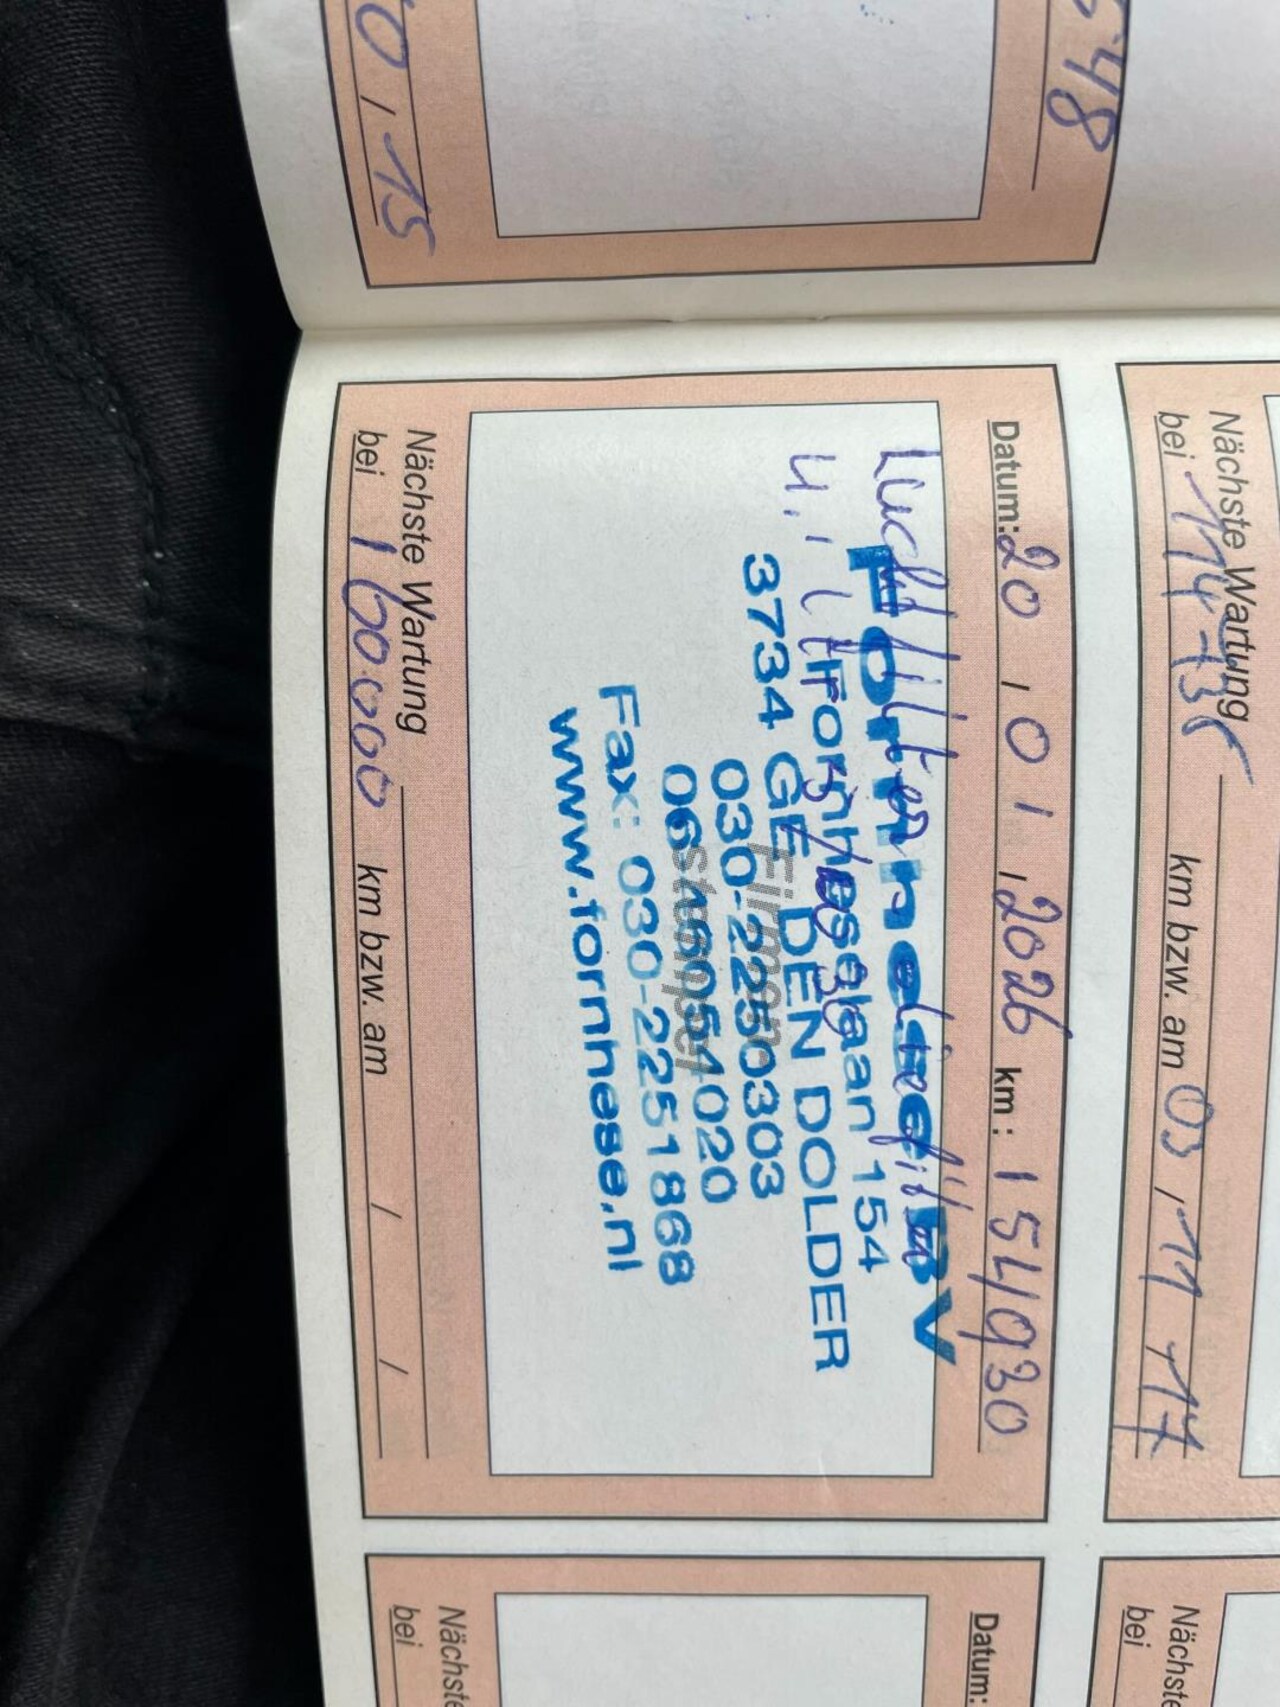 548
0 , 15
Nächste Wartung
bei 114 735 km bzw. am 03 , 11 , 17
Datum: 20 , 01 , 2026 km : 154930
Luchtfilter oliefilter
Fornhese BV
4,1 L
Fornheselaan 154
3734 GE DEN DOLDER
030-2250303
Firmen-
06-16054020
stempel
Fax: 030-2251868
www.fornhese.nl
Nächste Wartung
bei 160.000 km bzw. am / /
Nächste
bei
Datum:
Nächste
bei